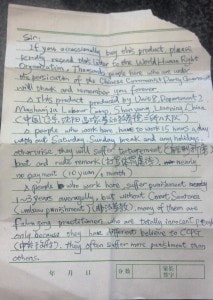 Sir:
If you occasionally buy this product, please
kindly resend this letter to the World Human Right
Organization. Thousands people here who are under
the persicution of the Chinese Communist Party Government
will thank and remember you forever.
This product produced by Unit 8, Department 2
Mashanjia Labour Camp, Shenyang, Liaoning, China
(中国,辽宁,沈阳,马三家
people who work here have to work 15 hours a day
with out Saturday, Sunday break and any holidays
otherwise, they will suffer torturement
beat and rude remark nearly
no payment (10 yuan/1 month)
people who work here, suffer punishment
1~3 years averagely, but without Court Sentence
(unlaw punishment) many of them are
Falun gong practitioner, who are totally innocent people
only because they have different believe to CCPG
they often suffer more punishment than
others.
年 月 日